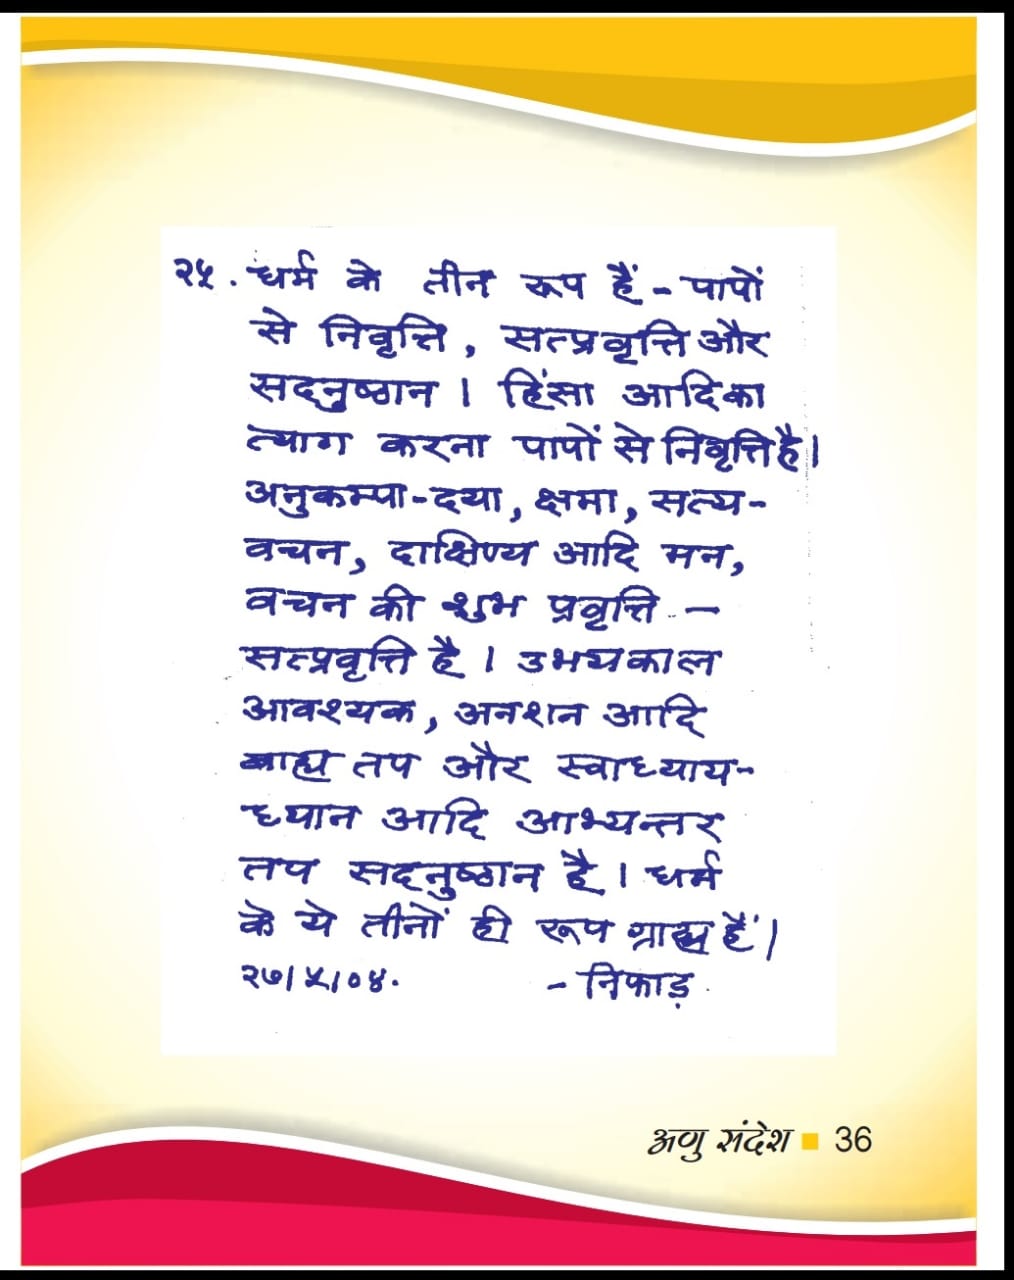 २५. धर्म के तीन रूप हैं - पापों
से निवृत्ति, सत्प्रवृत्ति और
सद्नुष्ठान । हिंसा आदिका
त्याग करना पापों से निवृत्ति है।
अनुकम्पा-दया, क्षमा, सत्य-
वचन, दाक्षिण्य आदि मन,
वचन की शुभ प्रवृत्ति -
सत्प्रवृत्ति है । उभयकाल
आवश्यक, अनशन आदि
बाह्य तप और स्वाध्याय-
ध्यान आदि आभ्यन्तर
तप सद्नुष्ठान है । धर्म
के ये तीनों ही रूप ग्राह्य हैं।
२७।५।०४. - निफाड़
अणु संदेश ■ 36